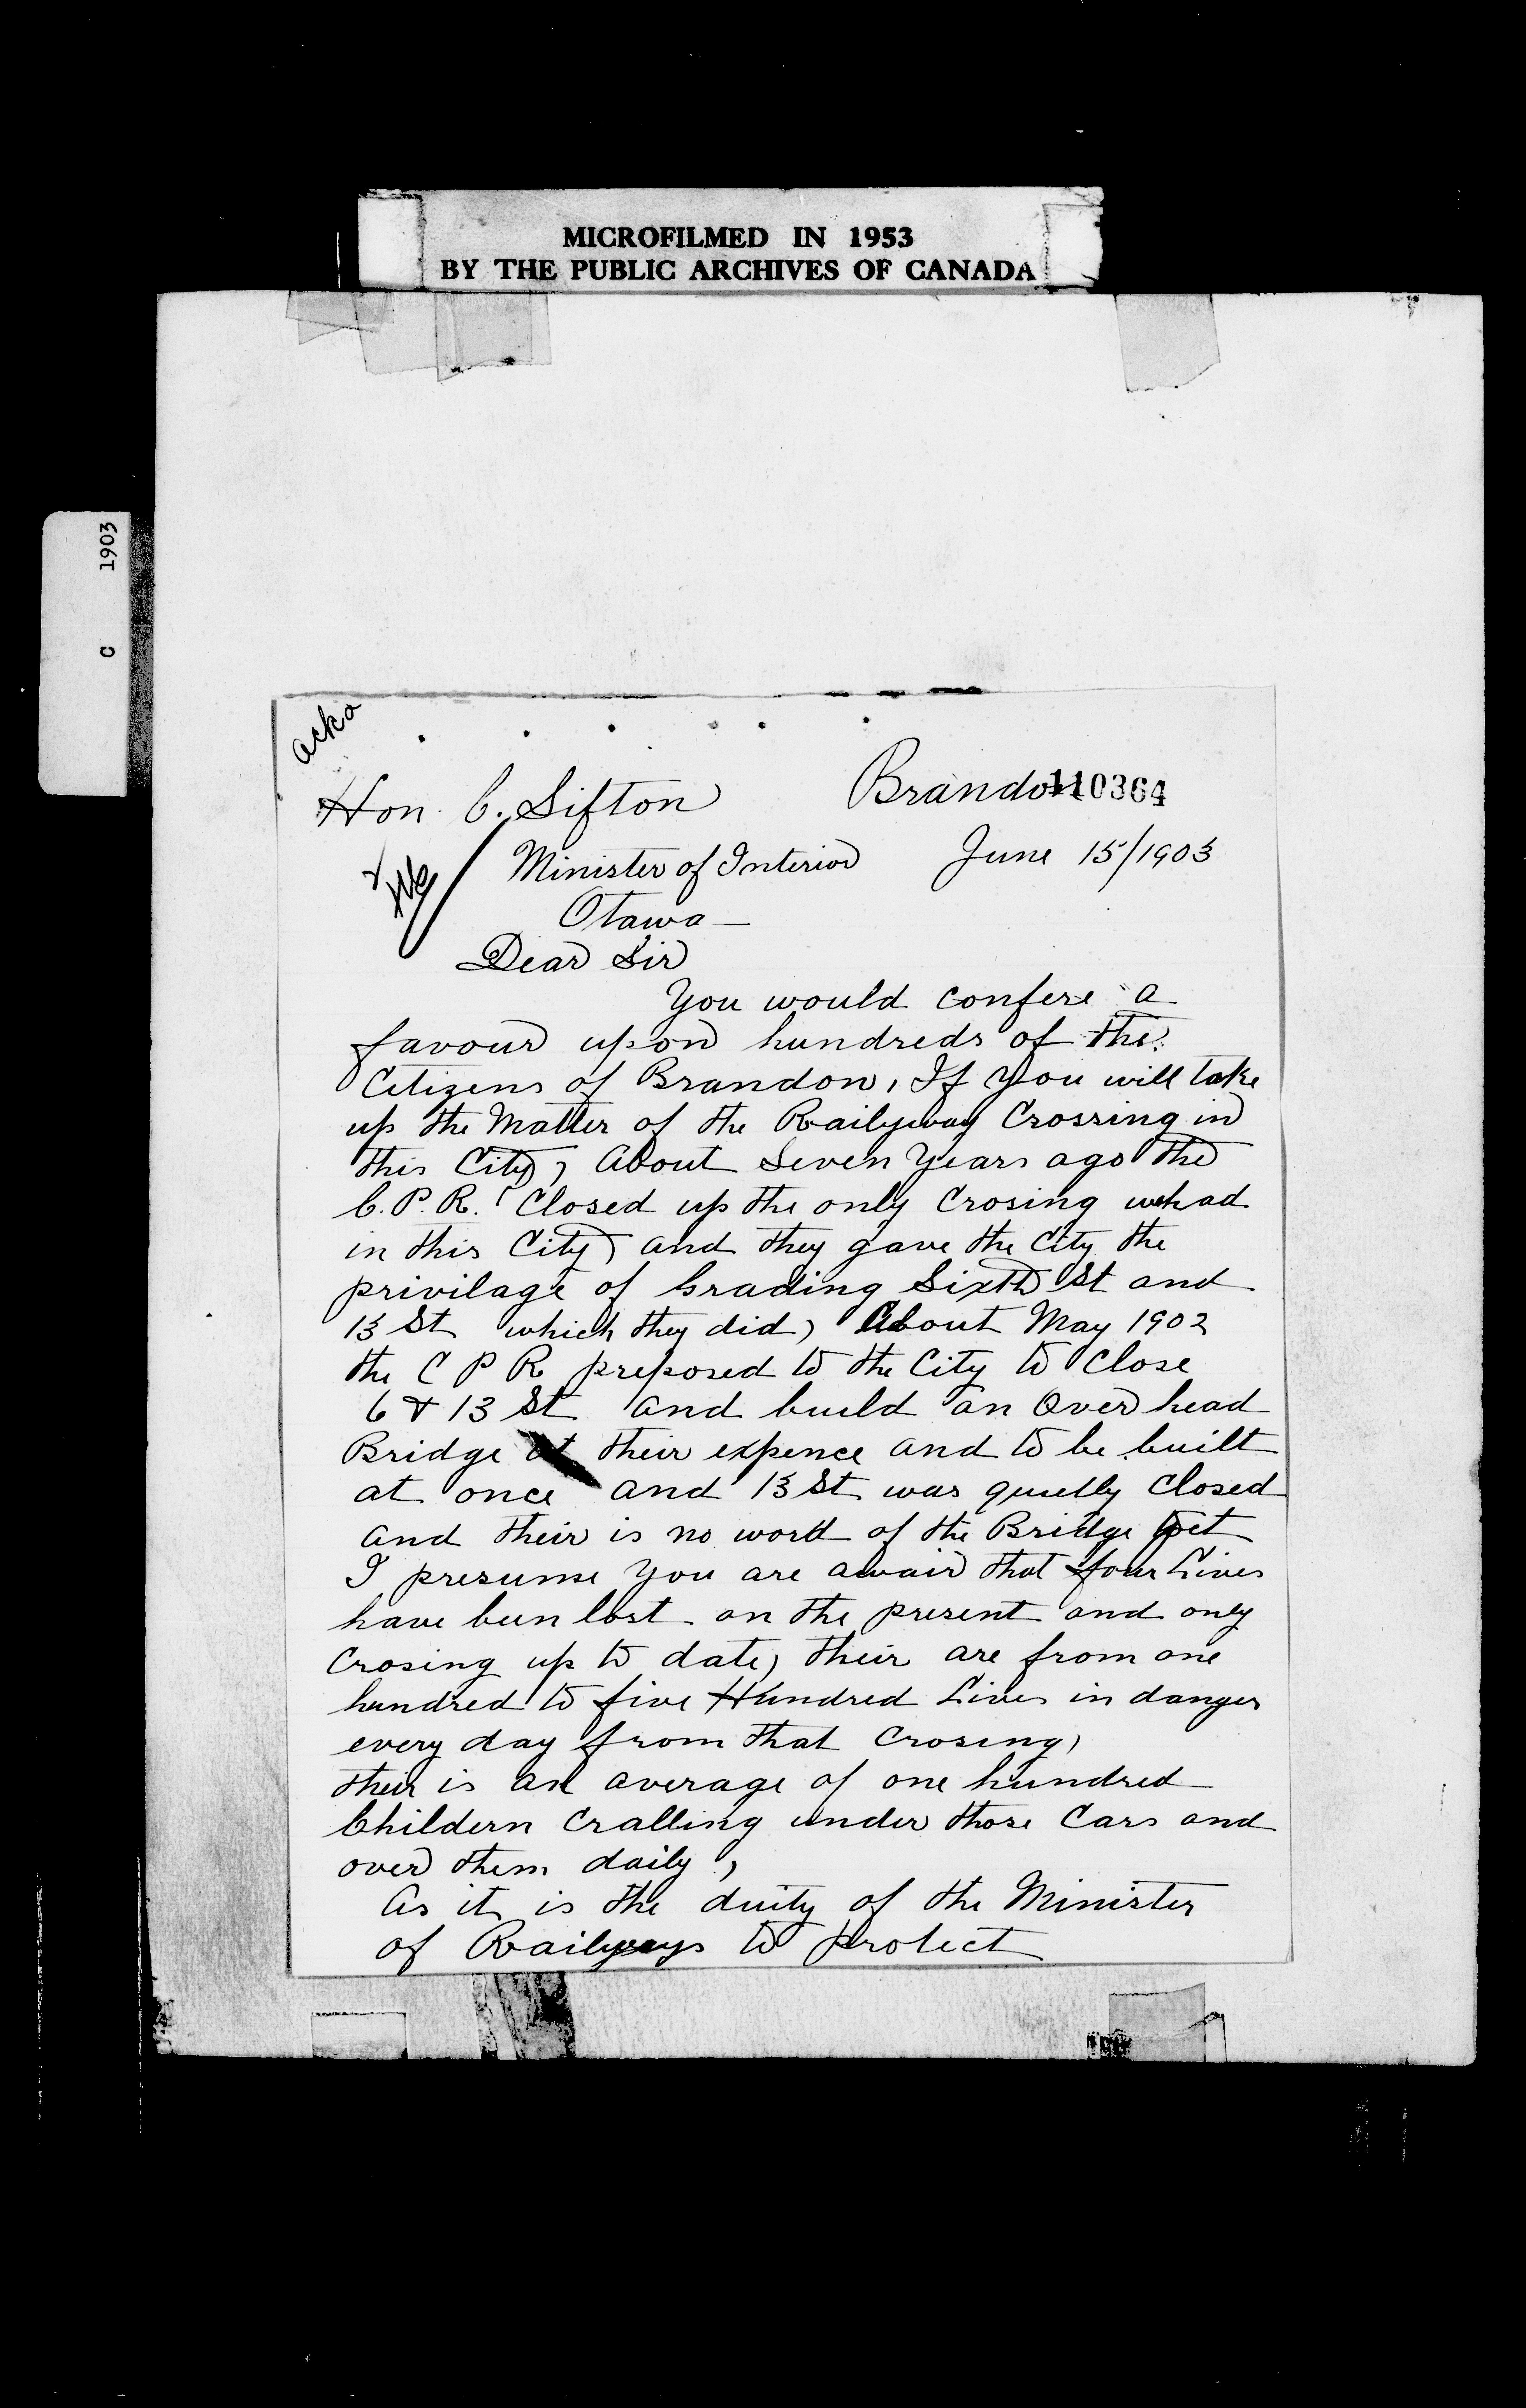 MICROFILMED IN 1953
BY THE PUBLIC ARCHIVES OF CANADA
C 1903
ackd
Brandon 110364
Hon. C. Sifton
June 15/1903
Minister of Interior
Otawa —
Dear Sir
You would confere a
favour upon hundreds of the
Citizens of Brandon, If you will take
up the Matter of the Railyway Crossing in
this City, About Seven Years ago the
C. P. R. Closed up the only Crosing we had
in this City, and they gave the City the
privilage of Grading Sixth St and
13 St which they did, About May 1902
the C P R preposed to the City to Close
6 & 13 St and build an Over head
Bridge at their expence and to be built
at once and 13 St was quietly Closed
and their is no word of the Bridge yet
I presume you are awair that four Lives
have been lost on the present and only
Crosing up to date, their are from one
hundred to five Hundred Lives in danger
every day from that Crosing,
their is an average of one hundred
Childern Cralling under those Cars and
over them daily,
As it is the duity of the Minister
of Railyways to protect